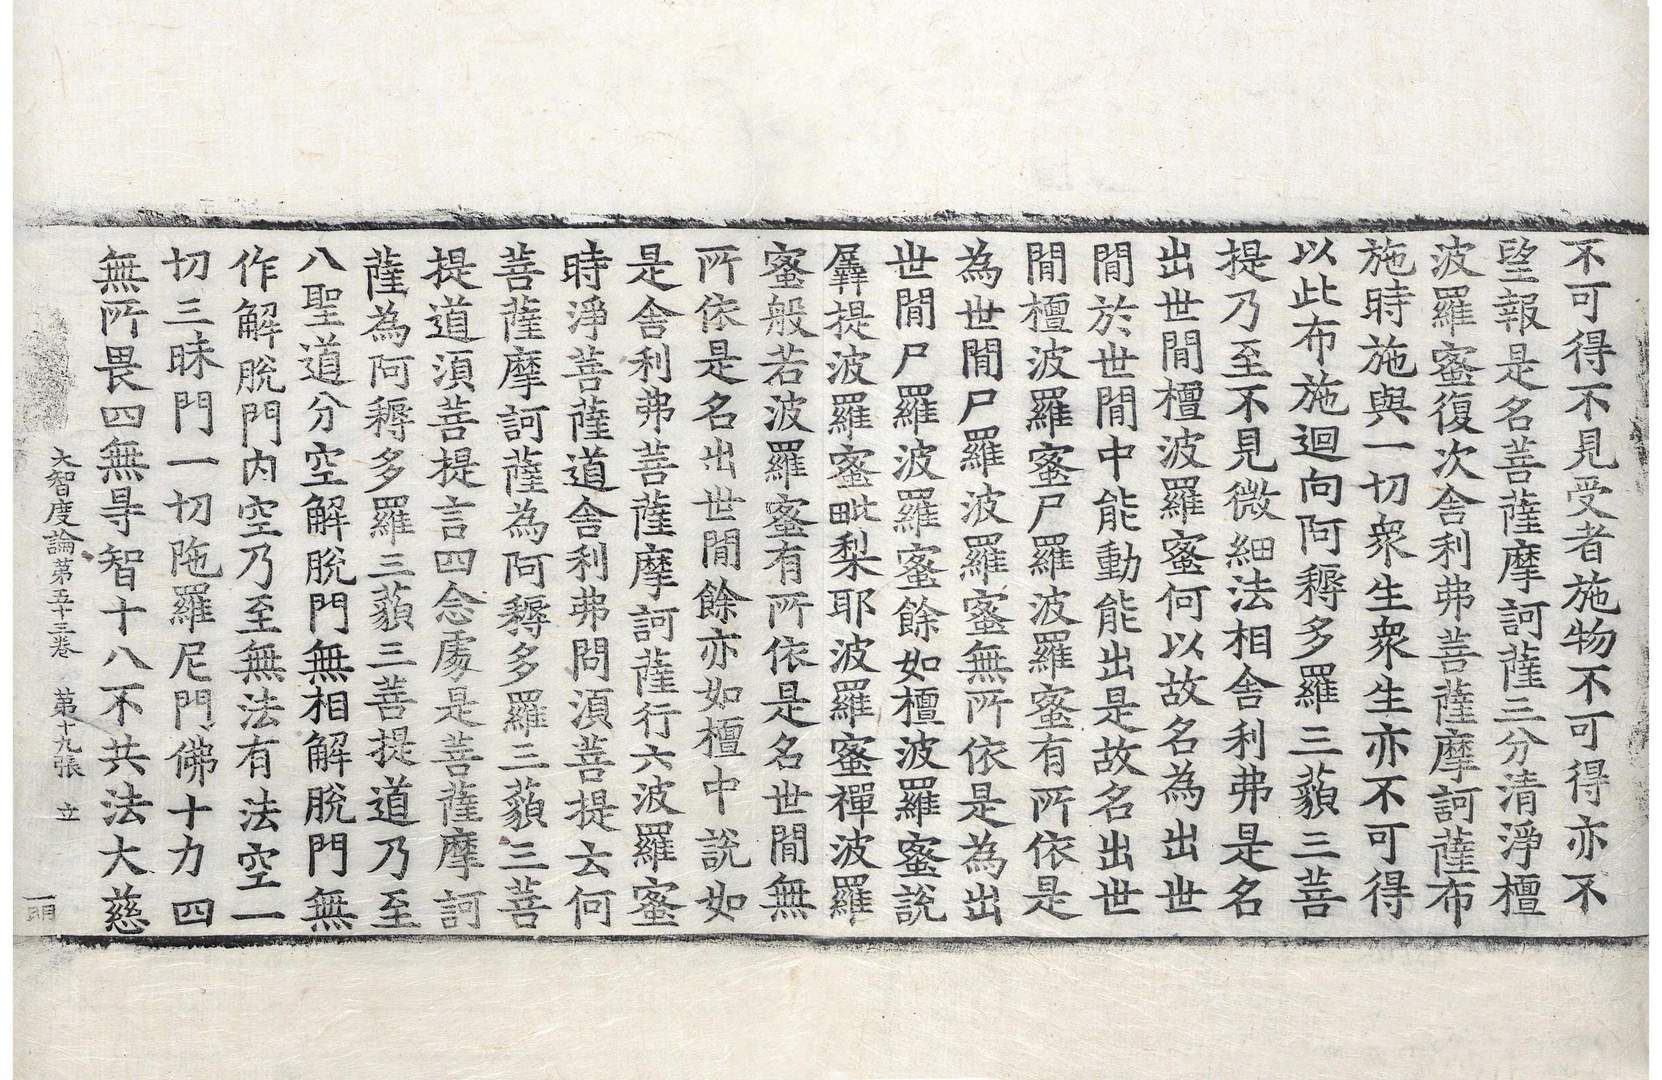 不可得不見受者施物不可得亦不
望報是名菩薩摩訶薩三分清淨檀
波羅蜜復次舍利弗菩薩摩訶薩布
施時施與一切衆生衆生亦不可得
以此布施迴向阿耨多羅三藐三菩
提乃至不見微細法相舍利弗是名
出世間檀波羅蜜何以故名為出世
間於世間中能動能出是故名出世
間檀波羅蜜尸羅波羅蜜有所依是
為世間尸羅波羅蜜無所依是為出
世間尸羅波羅蜜餘如檀波羅蜜說
羼提波羅蜜毗梨耶波羅蜜禪波羅
蜜般若波羅蜜有所依是名世間無
所依是名出世間餘亦如檀中說如
是舍利弗菩薩摩訶薩行六波羅蜜
時淨菩薩道舍利弗問須菩提云何
菩薩摩訶薩為阿耨多羅三藐三菩
提道須菩提言四念處是菩薩摩訶
薩為阿耨多羅三藐三菩提道乃至
八聖道分空解脫門無相解脫門無
作解脫門內空乃至無法有法空一
切三昧門一切陁羅尼門佛十力四
無所畏四無㝵智十八不共法大慈
大智度論第五十三卷 第十九張 立
一明